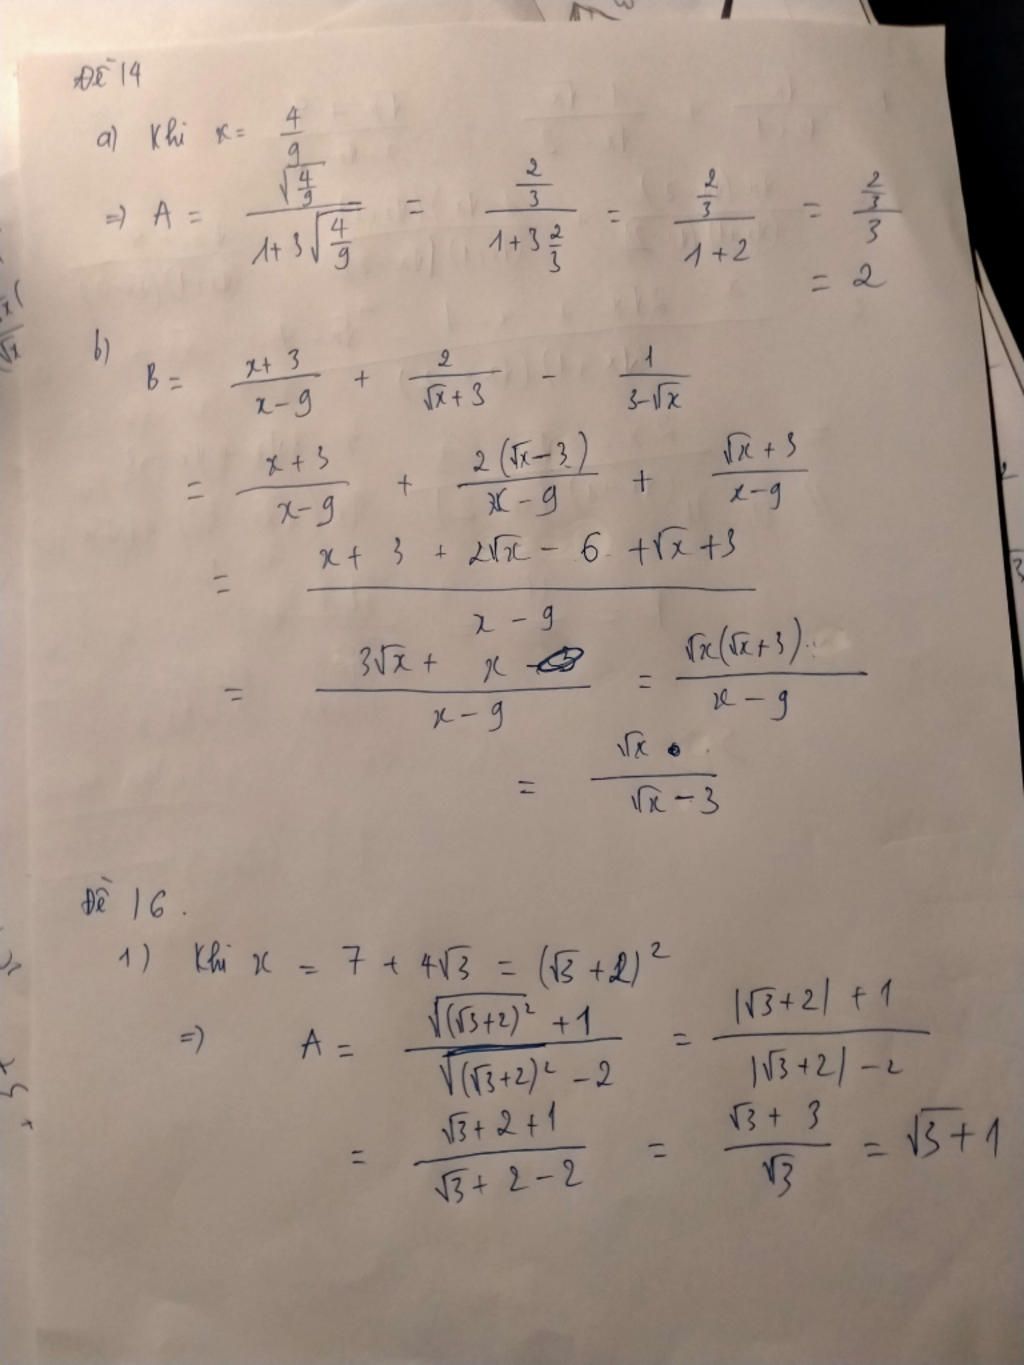 Đề 14
a) Khi x = 4/9
=> A = √(4/9) / (1+3√(4/9)) = (2/3) / (1+3 2/3) = (2/3) / (1+2) = (2/3) / 3
= 2
b)
B = (x+3)/(x-9) + 2/(√x+3) - 1/(3-√x)
= (x+3)/(x-9) + 2(√x-3)/(x-9) + (√x+3)/(x-9)
= (x+3+2√x-6+√x+3)/(x-9)
= (3√x+x)/(x-9) = √x(√x+3)/(x-9)
= √x/(√x-3)
Đề 16.
1) Khi x = 7 + 4√3 = (√3+2)²
=> A = (√((√3+2)²)+1) / (√((√3+2)²)-2) = (|√3+2|+1) / (|√3+2|-2)
= (√3+2+1) / (√3+2-2) = (√3+3)/√3 = √3+1